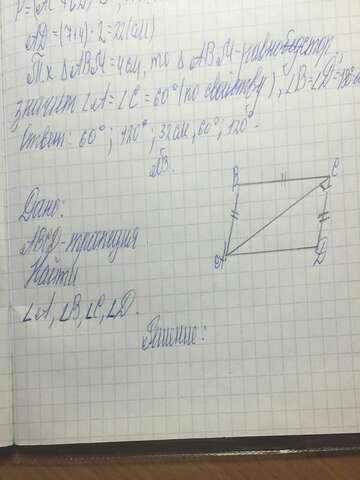 AD = (7+4)·2=22(см)
Т.к ΔABM=4см, то ΔABM-равнобедр
значит ∠A=∠C=60°(по свойству), ∠B=∠D=120°
Ответ: 60°; 120°; 32см, 60°, 120°.
№3.
Дано:
ABCD-трапеция
Найти
∠A, ∠B, ∠C, ∠D.
B C
A D
Решение: